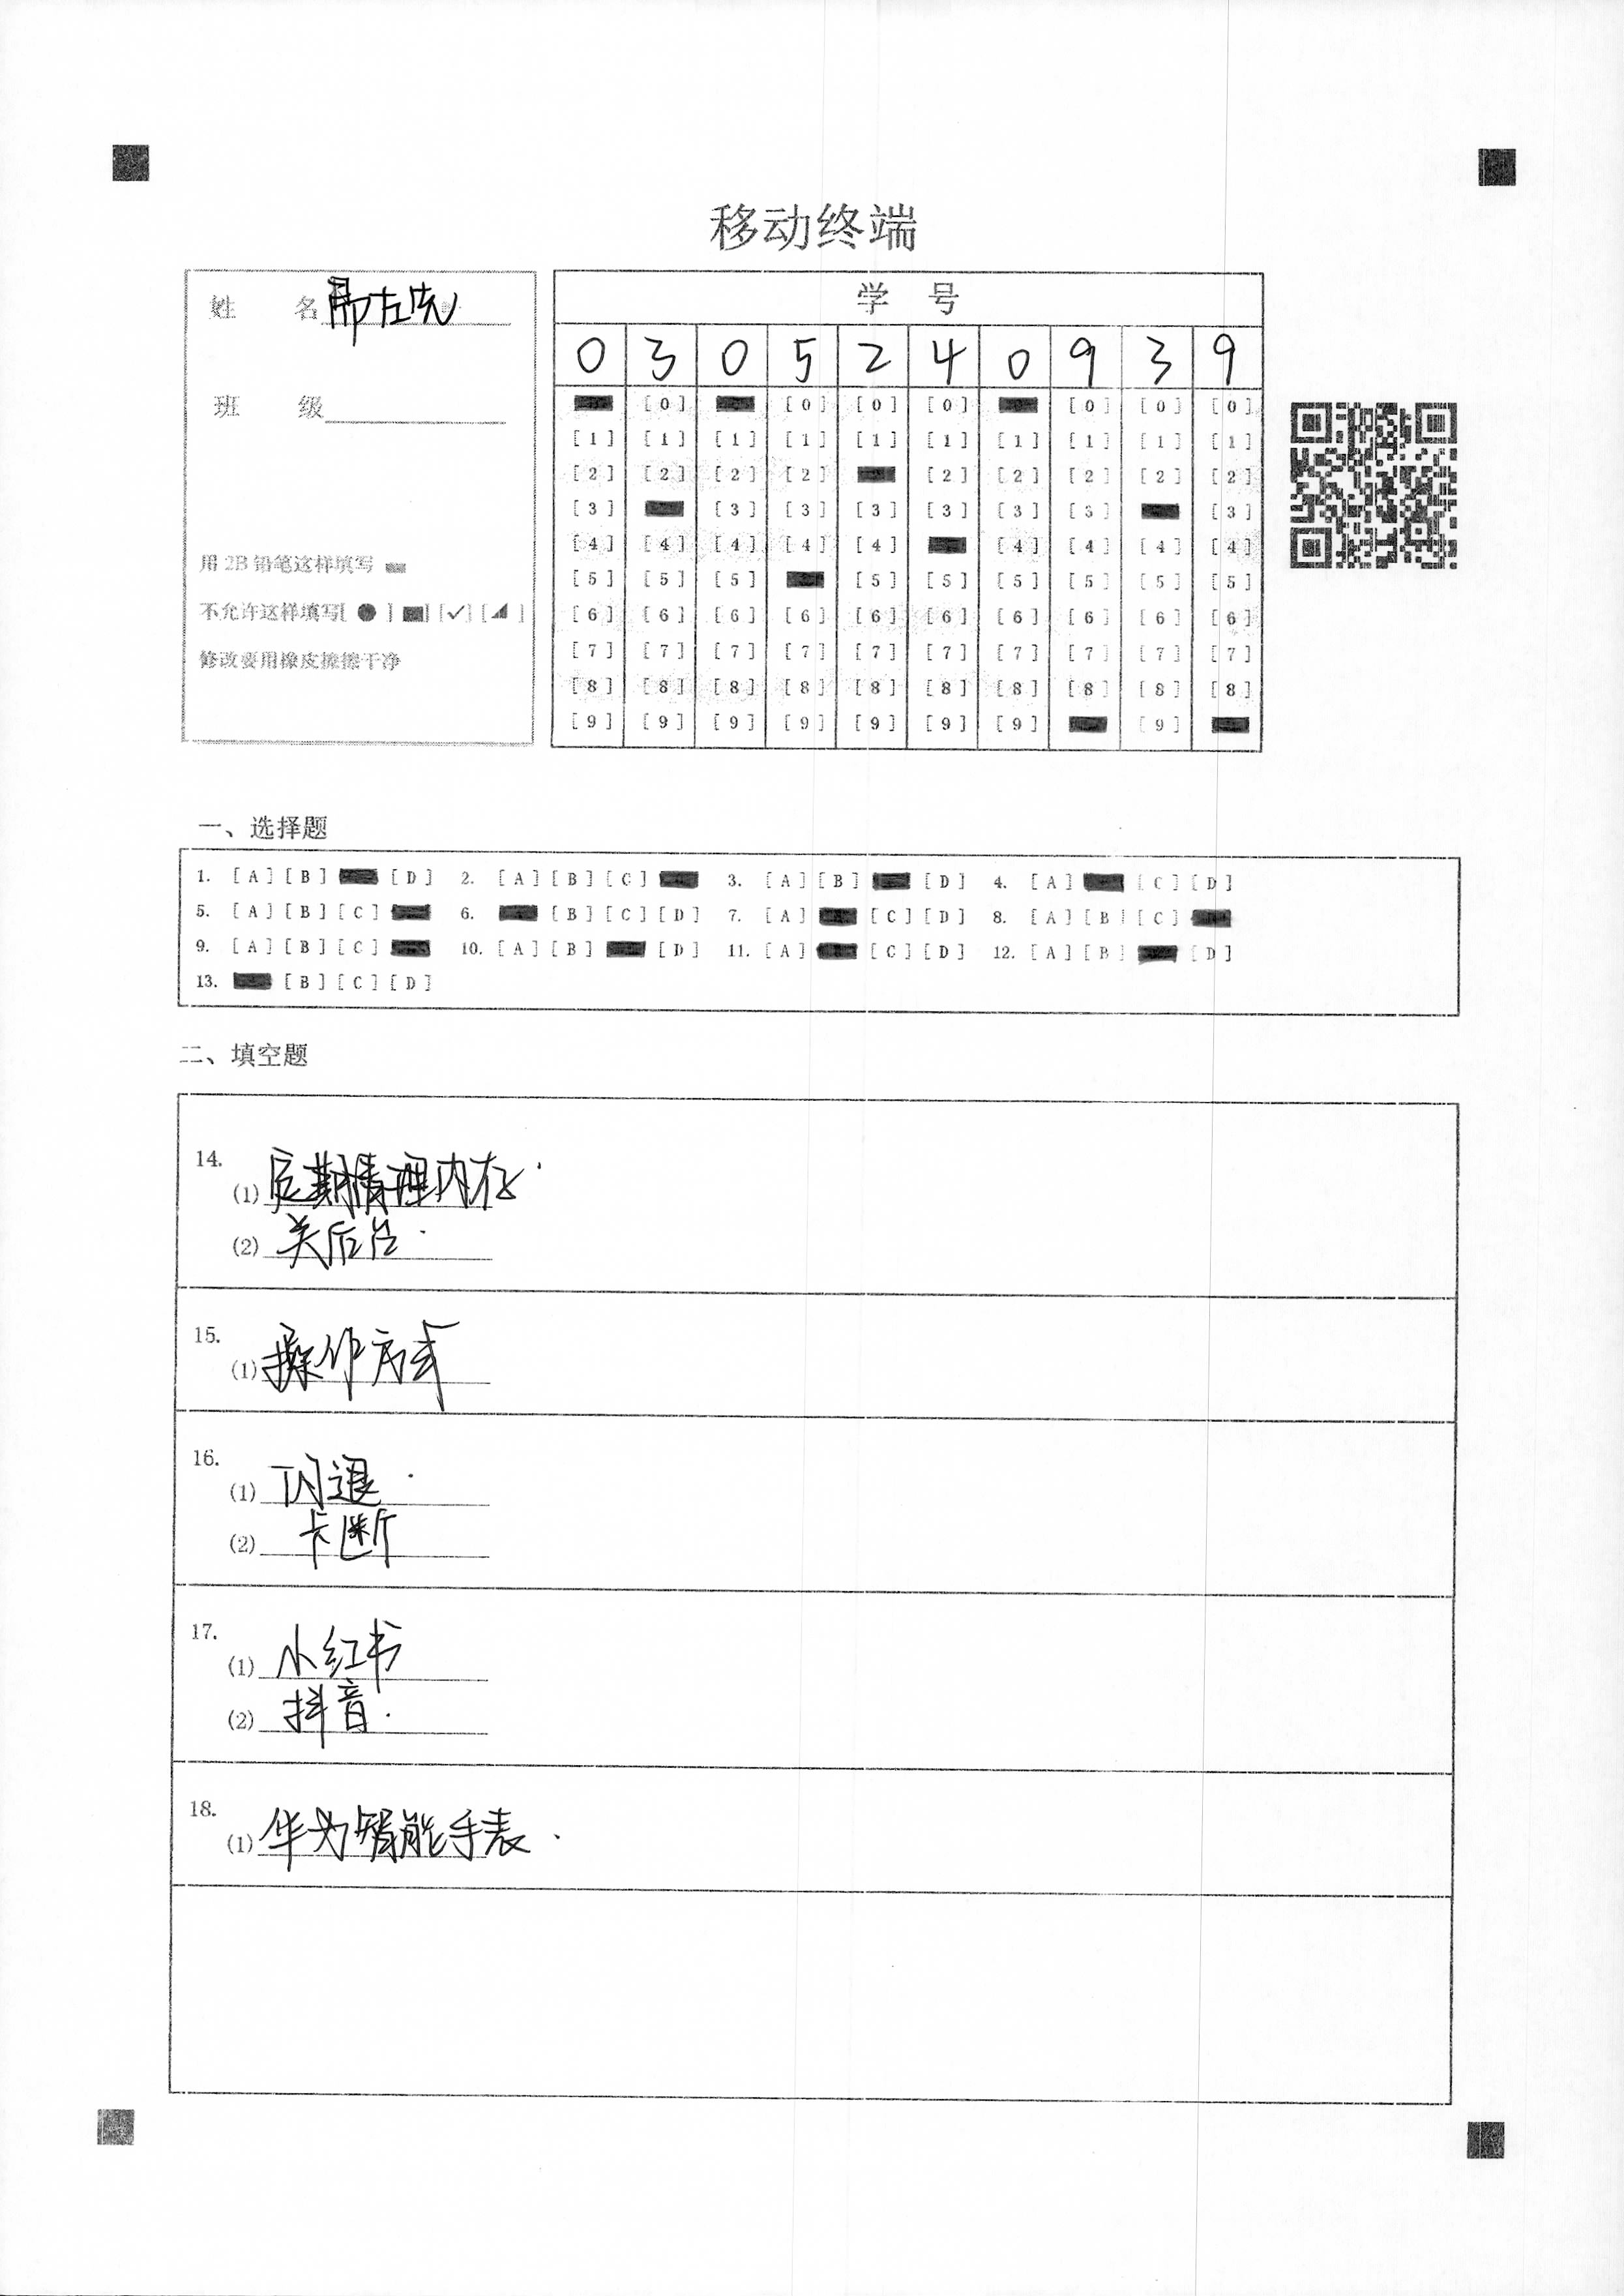 移动终端
姓 名
班 级
用 2B 铅笔这样填写
不允许这样填写[ ● ] ■] [✓] [◢ ]
修改要用橡皮擦擦干净
学 号
0 3 0 5 2 4 0 9 3 9
[0] [0] [0] [0] [0] [0] [0]
[1] [1] [1] [1] [1] [1] [1] [1] [1] [1]
[2] [2] [2] [2] [2] [2] [2] [2] [2]
[3] [3] [3] [3] [3] [3] [3] [3]
[4] [4] [4] [4] [4] [4] [4] [4] [4]
[5] [5] [5] [5] [5] [5] [5] [5] [5]
[6] [6] [6] [6] [6] [6] [6] [6] [6] [6]
[7] [7] [7] [7] [7] [7] [7] [7] [7] [7]
[8] [8] [8] [8] [8] [8] [8] [8] [8] [8]
[9] [9] [9] [9] [9] [9] [9] [9]
一、选择题
1. [A] [B] [D] 2. [A] [B] [C] 3. [A] [B] [D] 4. [A] [C] [D]
5. [A] [B] [C] 6. [B] [C] [D] 7. [A] [C] [D] 8. [A] [B] [C]
9. [A] [B] [C] 10. [A] [B] [D] 11. [A] [C] [D] 12. [A] [B] [D]
13. [B] [C] [D]
二、填空题
14.
(1) 定期清理内存.
(2) 关后台.
15.
(1) 操作方式
16.
(1) 闪退.
(2) 卡断
17.
(1) 小红书
(2) 抖音.
18.
(1) 华为智能手表.